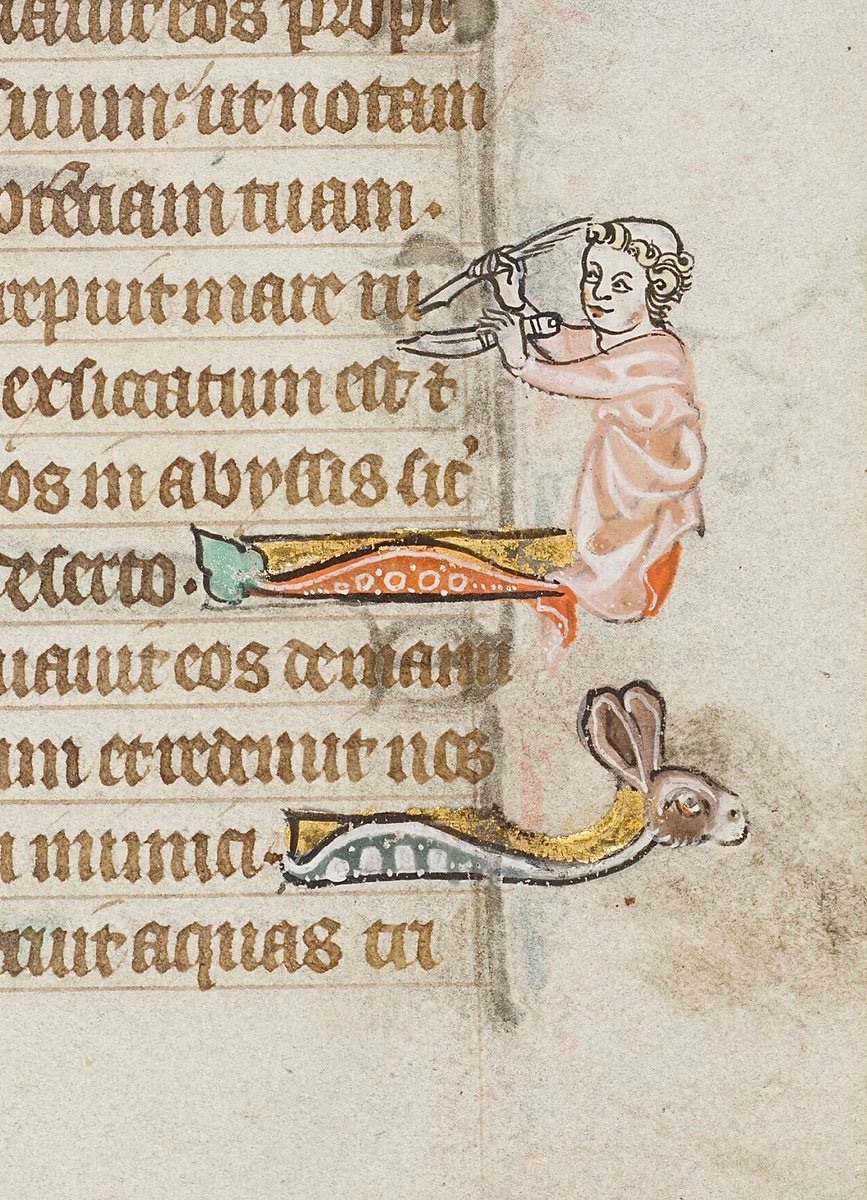 uauit eos propt
suum: ut notam
otētiam tuam.
repuit mare ru
exsiccatum est ⁊
os in abyssis sic᾽
deserto.
uauit eos de manu
um et redemit nos
inimici.
ruit aquas tri